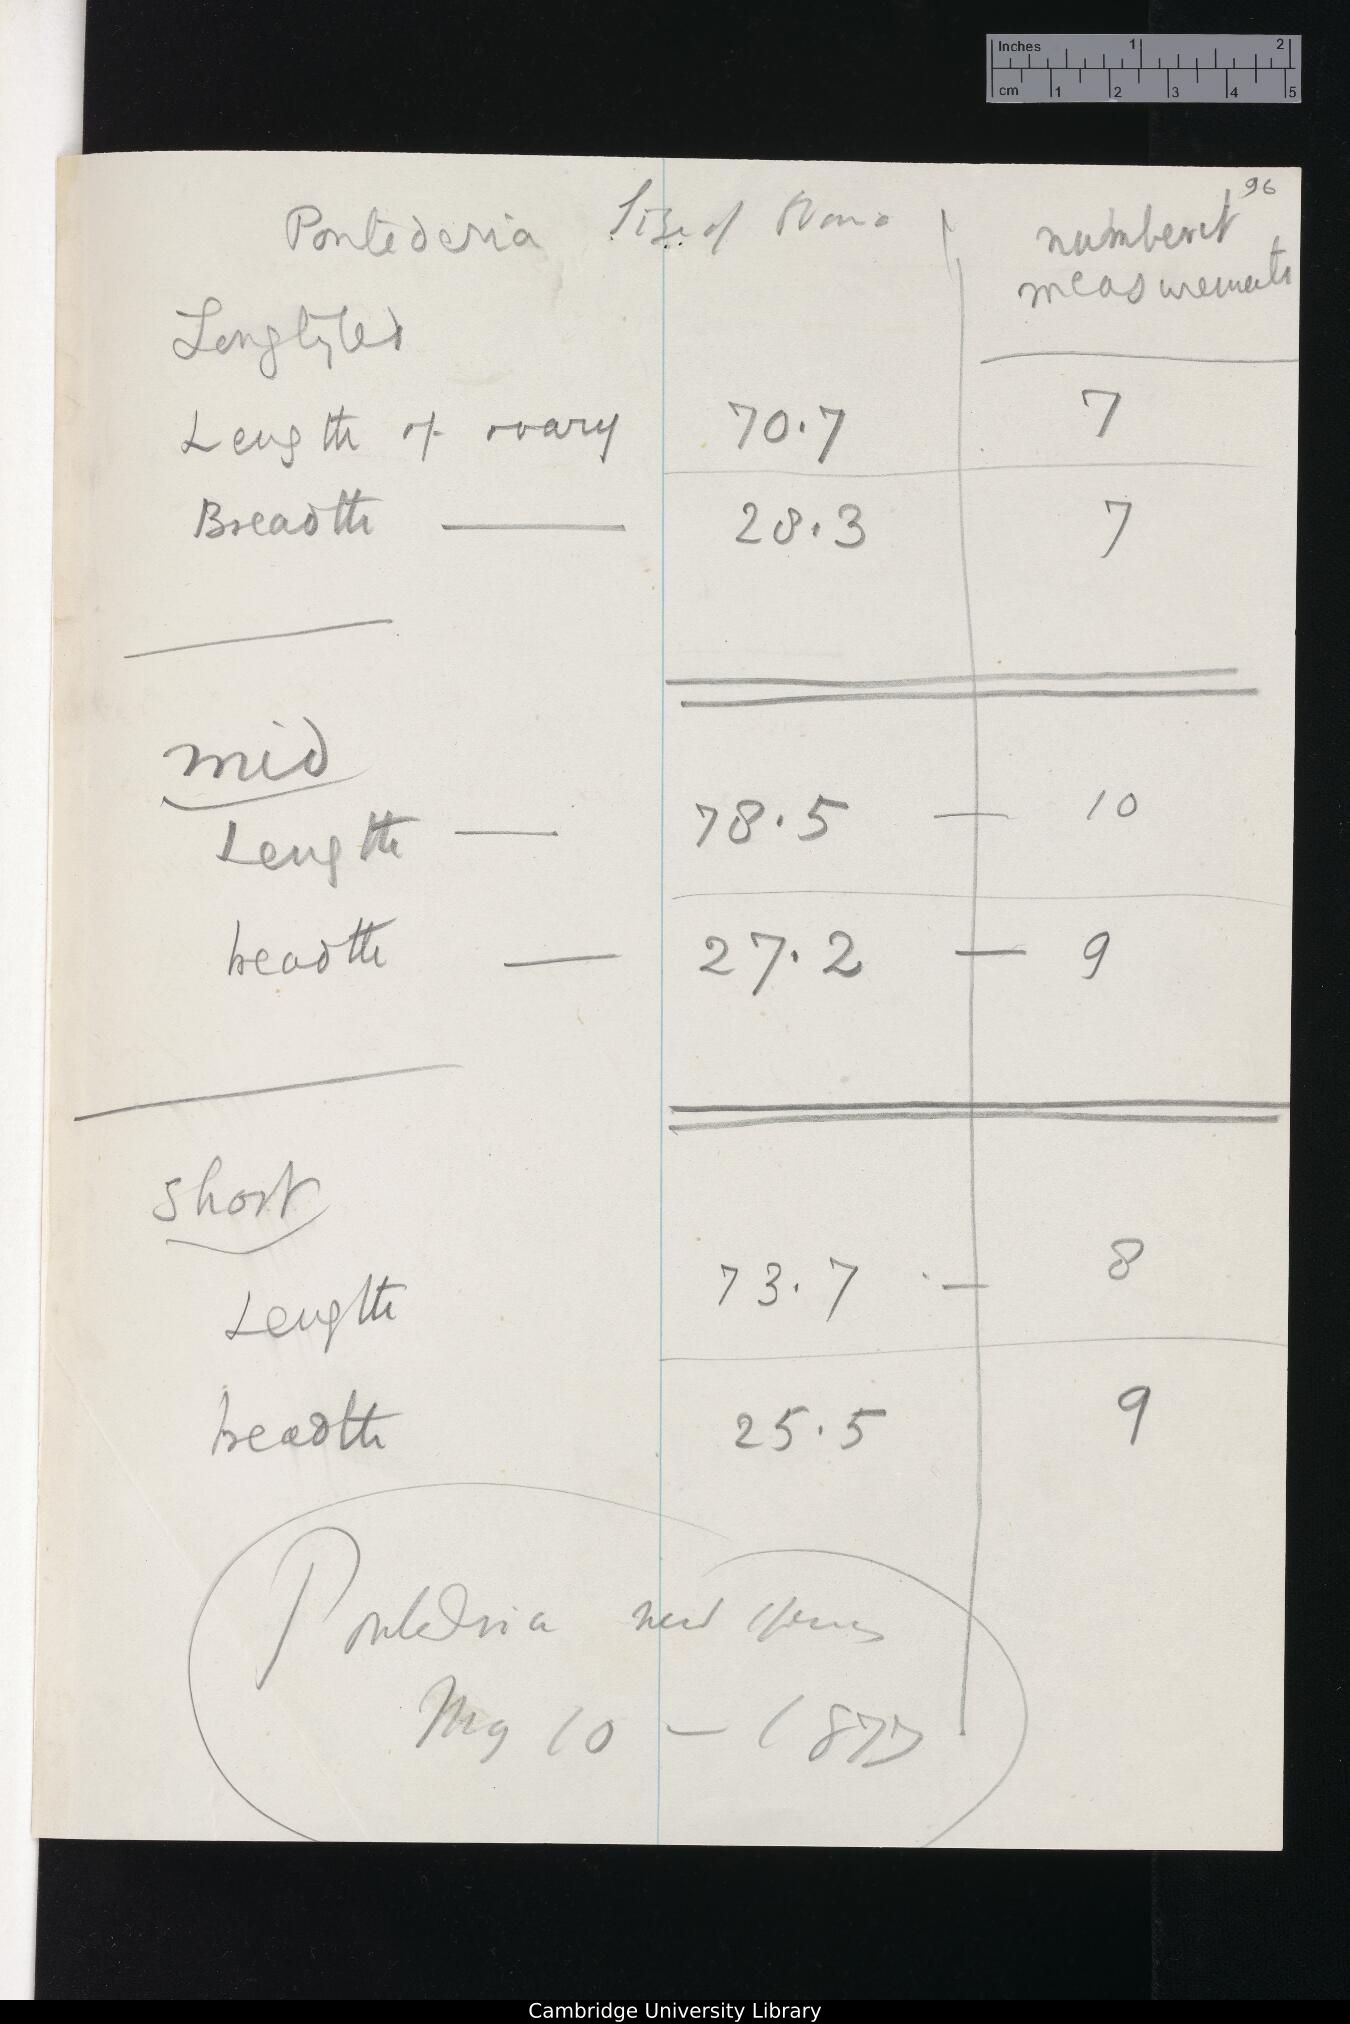 Inches 1 2
cm 1 2 3 4 5
96
Pontederia Size of Ovaria number of
measurements
Longstyled
Length of ovary 70.7 7
Breadth — 28.3 7
mid
Length — 78.5 — 10
breadth — 27.2 — 9
short
Length 73.7 — 8
breadth 25.5 9
Pontederia new species
May 10 — 1877
Cambridge University Library